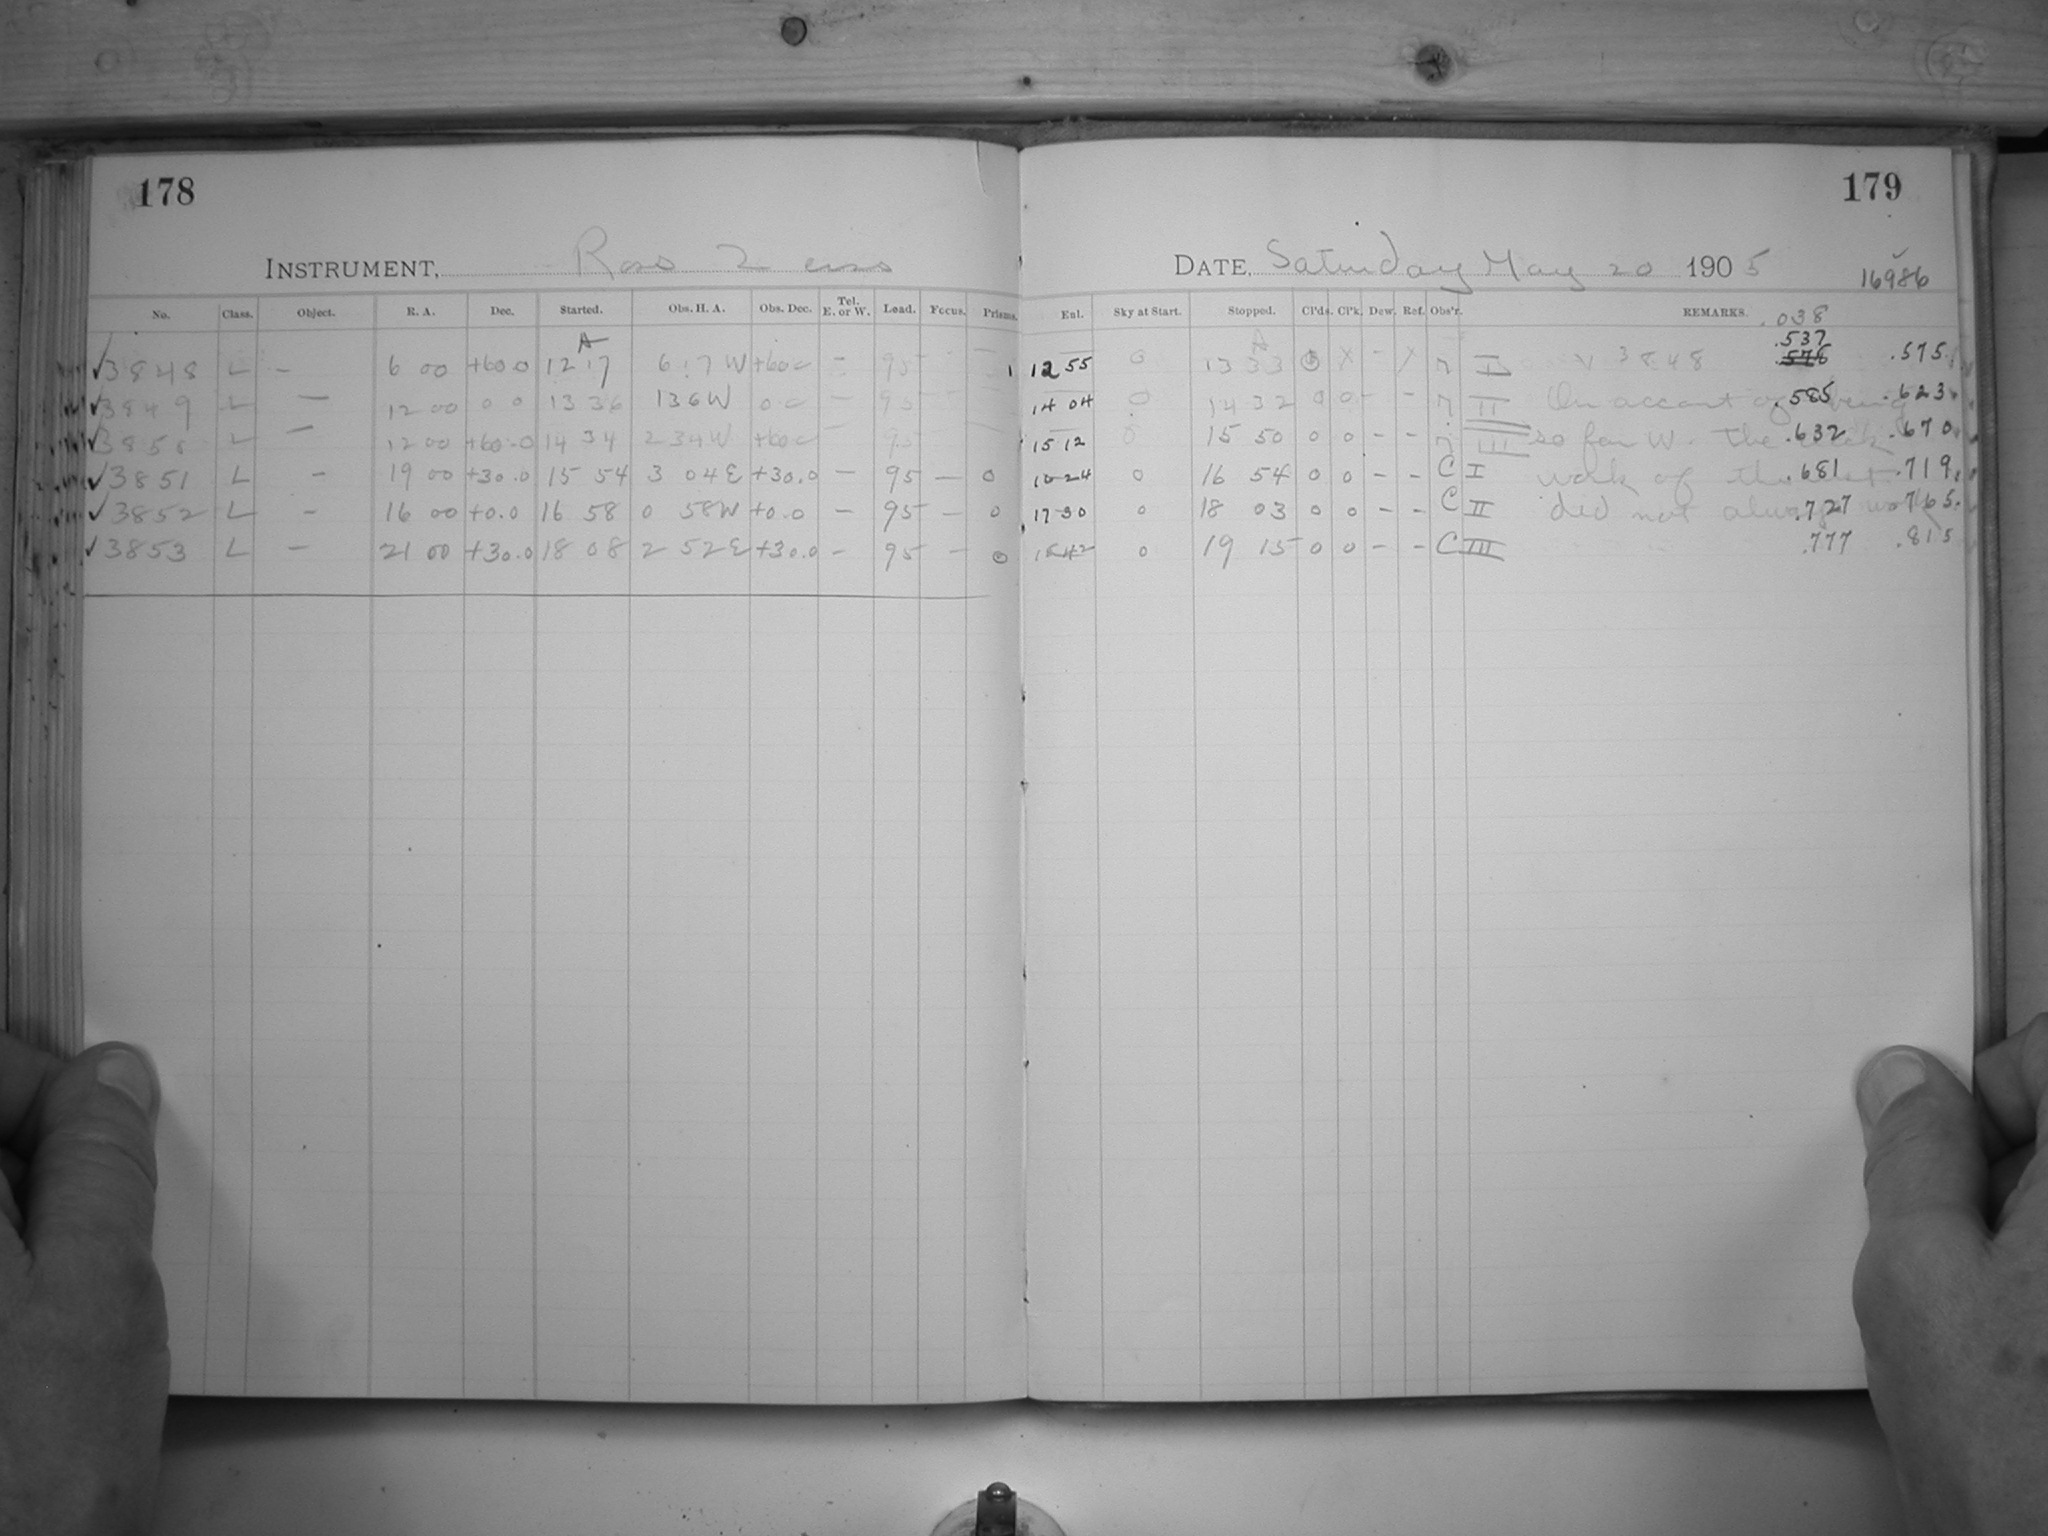 178
179
INSTRUMENT, Ross 2
DATE, Saturday May 20 1905
16986
No. Class. Object. R. A. Dec. Started. Obs. H. A. Obs. Dec. Tel. E. or W. Load. Focus. Prisms. Enl. Sky at Start. Stopped. Cl'ds. Cl'k. Dew. Ref. Obs'r. REMARKS. .038
A A .537
✓3848 L - 6 00 +60.0 12 17 6 17 W +60.0 - 95 12 55 0 13 33 X - I v 3848 576 .575
✓3849 L - 12 00 0 0 13 36 1 36 W 0 0 - 95 14 04 0 14 32 0 0 - - II On account of being .585 .623
✓3850 L - 12 00 +60.0 14 34 2 34 W +60.0 - 95 15 12 0 15 50 0 0 - - III so far W. the clock .632 .670
✓3851 L - 19 00 +30.0 15 54 3 04 E +30.0 - 95 - 0 16 24 0 16 54 0 0 - - C I work of the .681 .719
✓3852 L - 16 00 +0.0 16 58 0 58 W +0.0 - 95 - 0 17 30 0 18 03 0 0 - - C II did not always work .727 .765
✓3853 L - 21 00 +30.0 18 08 2 52 E +30.0 - 95 - 0 18 42 0 19 15 0 0 - - C III .777 .815